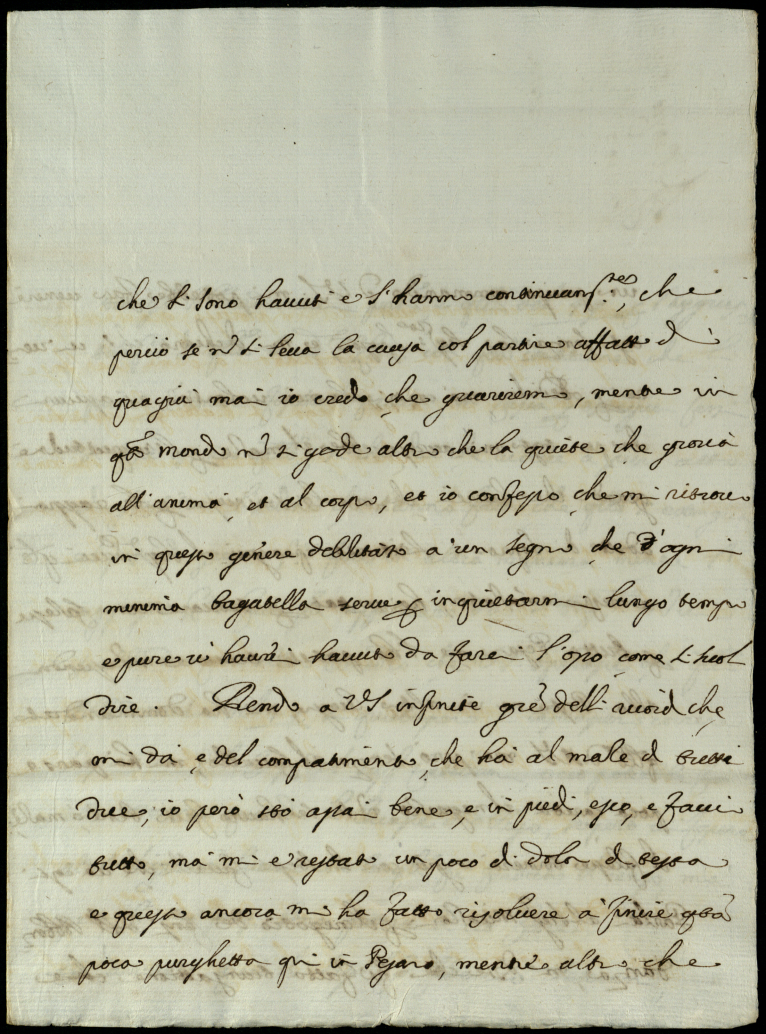 che si sono hauuti e s'hanno continuam.te, che
perciò se nō si leua la causa col partire affatto di
quagiù mai io credo che guariremo, mentre in
qto mondo nō si gode altro che la quiete che giova
all'anima, et al corpo, et io confesso che mi ritrouo
in questo genere debilitato a un segno che d'ogni
minima bagatella serue p inquietarmi lungo tempo
e pure ui haurei hauuto da fare l'oso, come si suol
dire. Rendo a VS infinite grē delli ricordi che
mi dà, e del compatimento, che hà al male di tutti
due, io però stò assai bene, e in piedi, esco, e facci
tutto, mà mi è restato un poco di dolor di testa
e questo ancora mi ha fatto risoluere à finire qta
poca purghetta qui in Pesaro, mentre altro che